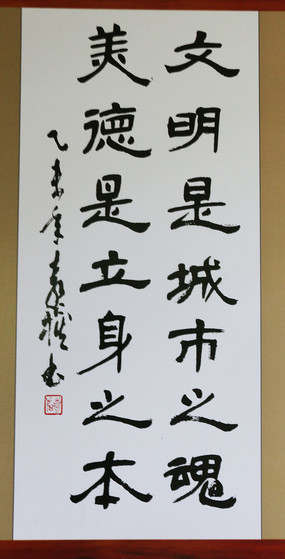 文明是城市之魂
美德是立身之本
乙未年
书